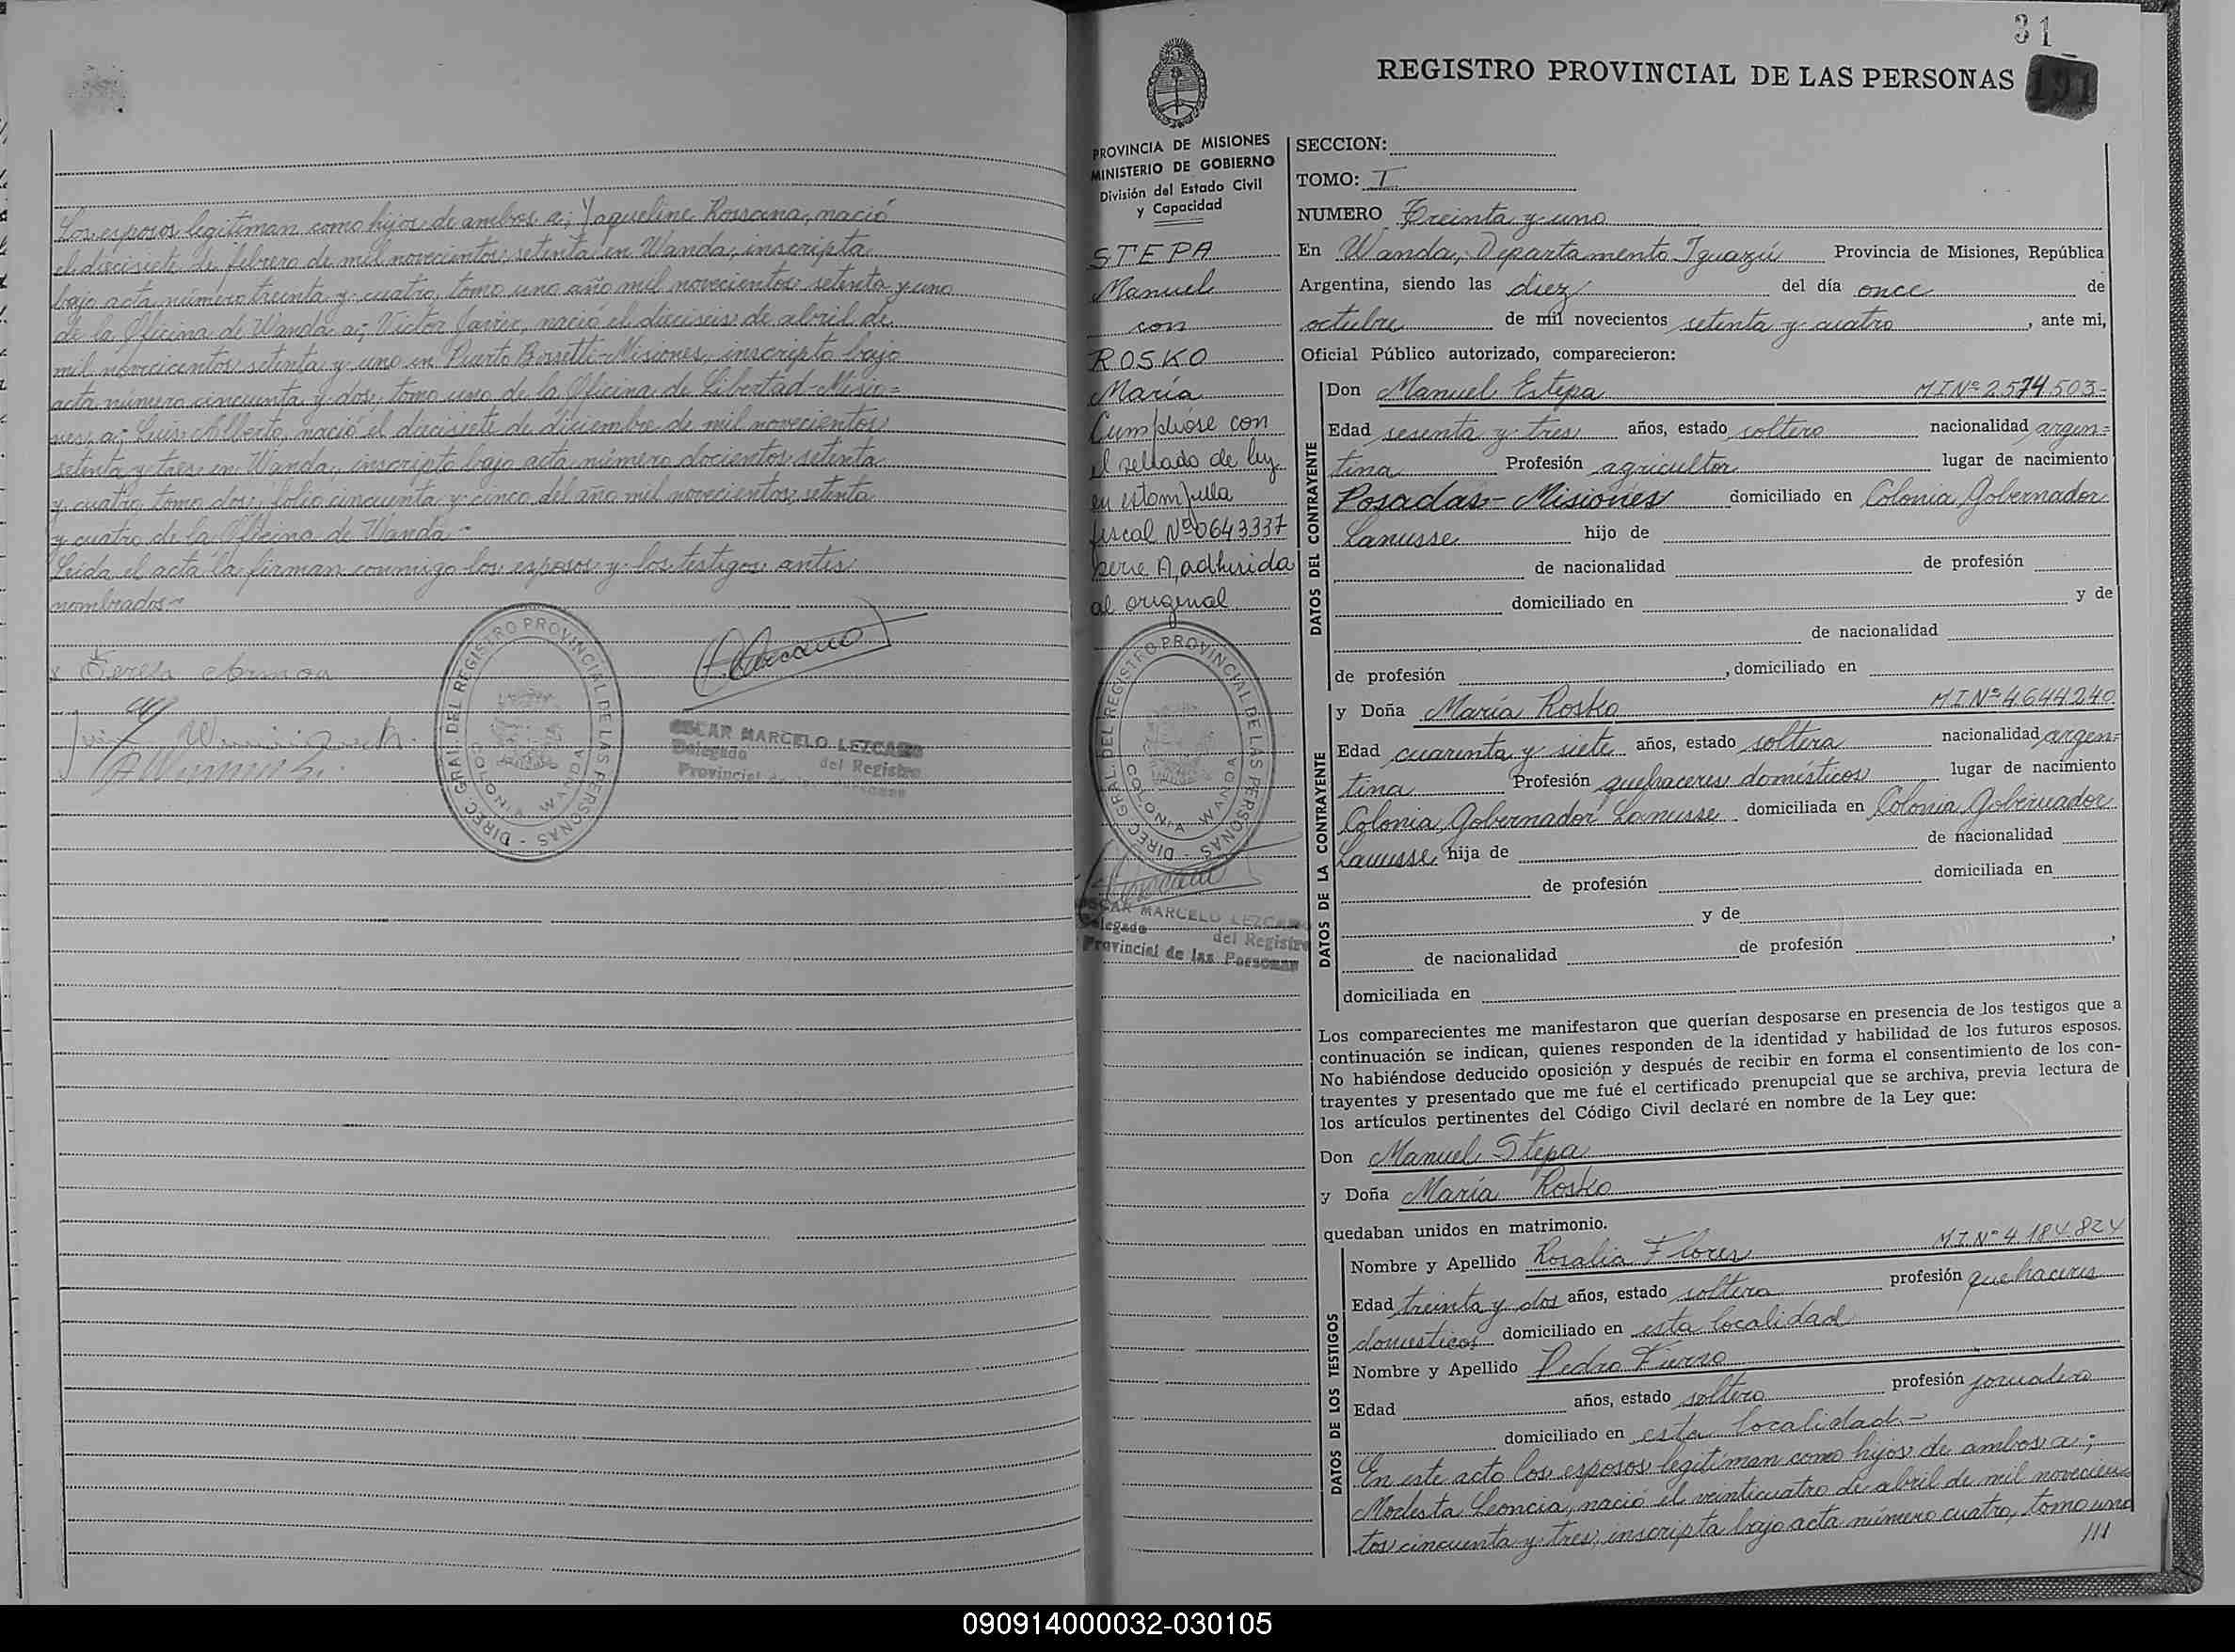 Los esposos legitiman como hijos de ambos a; Yaqueline Rossana, nació
el diecisiete de febrero de mil novecientos setenta en Wanda, inscripta
bajo acta número treinta y cuatro, tomo uno año mil novecientos setenta y uno
de la Oficina de Wanda a; Victor Javier, nació el dieciseis de abril de
mil novecientos setenta y uno en Puerto Bossetti-Misiones, inscripto bajo
acta número cincuenta y dos, tomo uno de la Oficina de Libertad-Misio=
nes, a; Luis Alberto, nació el diecisiete de diciembre de mil novecientos
setenta y tres en Wanda, inscripto bajo acta número docientos setenta
y cuatro, tomo dos, folio cincuenta y cinco del año mil novecientos setenta
y cuatro de la Oficina de Wanda-
Leida el acta la firman conmigo los esposos y los testigos antes
nombrados-
DIREC. GRAL. DEL REGISTRO PROVINCIAL DE LAS PERSONAS -
COLONIA WANDA
OSCAR MARCELO LEZCANO
Delegado del Registro
Provincial de las Personas
31
REGISTRO PROVINCIAL DE LAS PERSONAS
191
PROVINCIA DE MISIONES
MINISTERIO DE GOBIERNO
División del Estado Civil
y Capacidad
STEPA
Manuel
con
ROSKO
María
Cumplióse con
el sellado de ley
en estampilla
fiscal Nº 0643337
serie A, adherida
al original
DIREC. GRAL. DEL REGISTRO PROVINCIAL DE LAS PERSONAS -
COLONIA WANDA
OSCAR MARCELO LEZCANO
Delegado del Registro
Provincial de las Personas
SECCION:
TOMO: I
NUMERO Treinta y uno
En Wanda, Departamento Iguazú Provincia de Misiones, República
Argentina, siendo las diez del día once de
octubre de mil novecientos setenta y cuatro, ante mi,
Oficial Público autorizado, comparecieron:
DATOS DEL CONTRAYENTE
Don Manuel Estepa M.I.Nº 2.574.503-
Edad sesenta y tres años, estado soltero nacionalidad argen=
tina Profesión agricultor lugar de nacimiento
Posadas - Misiones domiciliado en Colonia Gobernador
Lanusse hijo de
de nacionalidad de profesión
domiciliado en y de
de nacionalidad
de profesión , domiciliado en
DATOS DE LA CONTRAYENTE
y Doña María Rosko M.I.Nº 4.644.240
Edad cuarenta y siete años, estado soltera nacionalidad argen=
tina Profesión quehaceres domésticos lugar de nacimiento
Colonia Gobernador Lanusse domiciliada en Colonia Gobernador
Lanusse hija de de nacionalidad
de profesión domiciliada en
y de
de nacionalidad de profesión ,
domiciliada en
Los comparecientes me manifestaron que querían desposarse en presencia de los testigos que a
continuación se indican, quienes responden de la identidad y habilidad de los futuros esposos.
No habiéndose deducido oposición y después de recibir en forma el consentimiento de los con-
trayentes y presentado que me fué el certificado prenupcial que se archiva, previa lectura de
los artículos pertinentes del Código Civil declaré en nombre de la Ley que:
Don Manuel Stepa
y Doña María Rosko
quedaban unidos en matrimonio.
DATOS DE LOS TESTIGOS
Nombre y Apellido Rosalia Flores M.I.Nº 4.184.824
Edad treinta y dos años, estado soltera profesión quehaceres
domesticos domiciliado en esta localidad
Nombre y Apellido Pedro
Edad años, estado soltero profesión jornalero
domiciliado en esta localidad.-
En este acto los esposos legitiman como hijos de ambos a;
Modesta Leoncia, nació el veinticuatro de abril de mil novecien=
tos cincuenta y tres, inscripta bajo acta número cuatro, tomo uno
///
090914000032-030105